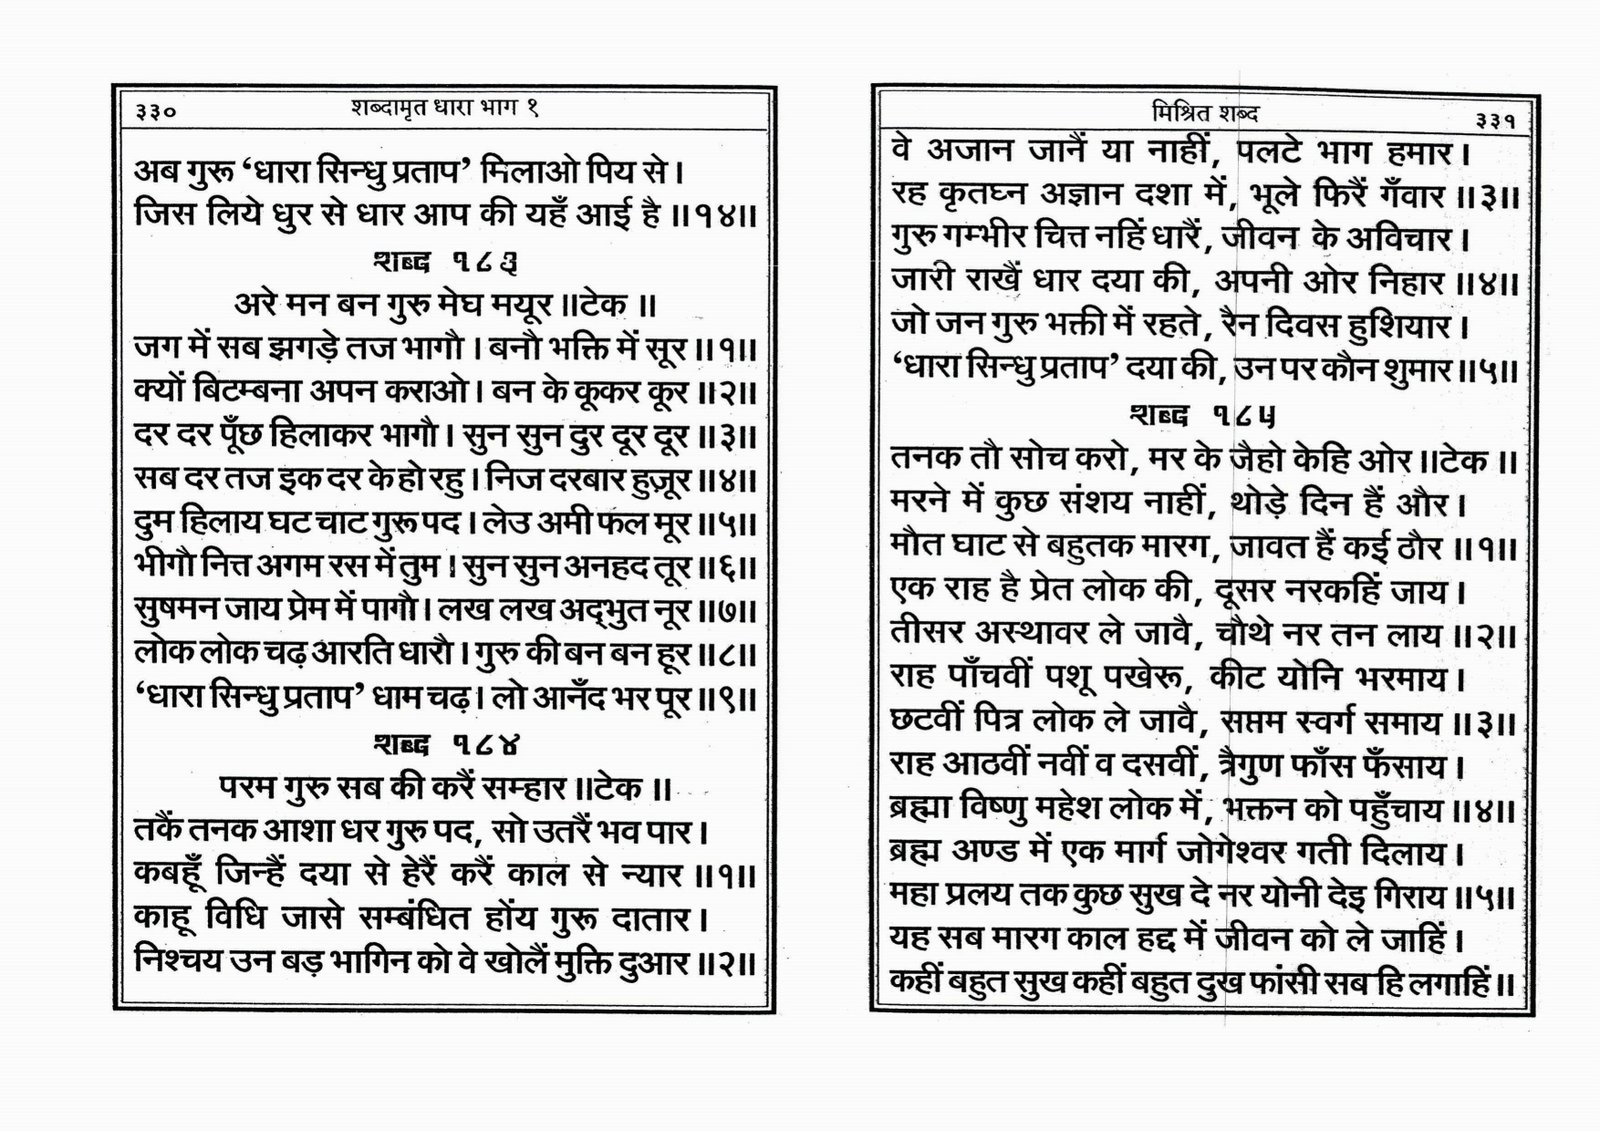 ३३० शब्दामृत धारा भाग १
अब गुरू ‘धारा सिन्धु प्रताप’ मिलाओ पिय से ।
जिस लिये धुर से धार आप की यहँ आई है ॥१४॥
शब्द १८३
अरे मन बन गुरू मेघ मयूर ॥टेक ॥
जग में सब झगड़े तज भागौ । बनौ भक्ति में सूर ॥१॥
क्यों बिटम्बना अपन कराओ । बन के कूकर कूर ॥२॥
दर दर पूँछ हिलाकर भागौ । सुन सुन दुर दूर दूर ॥३॥
सब दर तज इक दर के हो रहु । निज दरबार हुज़ूर ॥४॥
दुम हिलाय घट चाट गुरू पद । लेउ अमी फल मूर ॥५॥
भीगौ नित्त अगम रस में तुम । सुन सुन अनहद तूर ॥६॥
सुषमन जाय प्रेम में पागौ । लख लख अद्भुत नूर ॥७॥
लोक लोक चढ़ आरति धारौ । गुरू की बन बन हूर ॥८॥
‘धारा सिन्धु प्रताप’ धाम चढ़ । लो आनँद भर पूर ॥९॥
शब्द १८४
परम गुरू सब की करैं सम्हार ॥टेक ॥
तकैं तनक आशा धर गुरू पद, सो उतरैं भव पार ।
कबहूँ जिन्हैं दया से हेरैं करैं काल से न्यार ॥१॥
काहू विधि जासे सम्बंधित होंय गुरू दातार ।
निश्चय उन बड़ भागिन को वे खोलैं मुक्ति दुआर ॥२॥
मिश्रित शब्द ३३१
वे अजान जानैं या नाहीं, पलटे भाग हमार ।
रह कृतघ्न अज्ञान दशा में, भूले फिरैं गँवार ॥३॥
गुरू गम्भीर चित्त नहिं धारैं, जीवन के अविचार ।
जारी राखैं धार दया की, अपनी ओर निहार ॥४॥
जो जन गुरू भक्ती में रहते, रैन दिवस हुशियार ।
‘धारा सिन्धु प्रताप’ दया की, उन पर कौन शुमार ॥५॥
शब्द १८५
तनक तौ सोच करो, मर के जैहो केहि ओर ॥टेक ॥
मरने में कुछ संशय नाहीं, थोड़े दिन हैं और ।
मौत घाट से बहुतक मारग, जावत हैं कई ठौर ॥१॥
एक राह है प्रेत लोक की, दूसर नरकहिं जाय ।
तीसर अस्थावर ले जावै, चौथे नर तन लाय ॥२॥
राह पाँचवीं पशू पखेरू, कीट योनि भरमाय ।
छटवीं पित्र लोक ले जावै, सप्तम स्वर्ग समाय ॥३॥
राह आठवीं नवीं व दसवीं, त्रैगुण फाँस फँसाय ।
ब्रह्मा विष्णु महेश लोक में, भक्तन को पहुँचाय ॥४॥
ब्रह्म अण्ड में एक मार्ग जोगेश्वर गती दिलाय ।
महा प्रलय तक कुछ सुख दे नर योनी देइ गिराय ॥५॥
यह सब मारग काल हद्द में जीवन को ले जाहिं ।
कहीं बहुत सुख कहीं बहुत दुख फांसी सब हि लगाहिं ॥